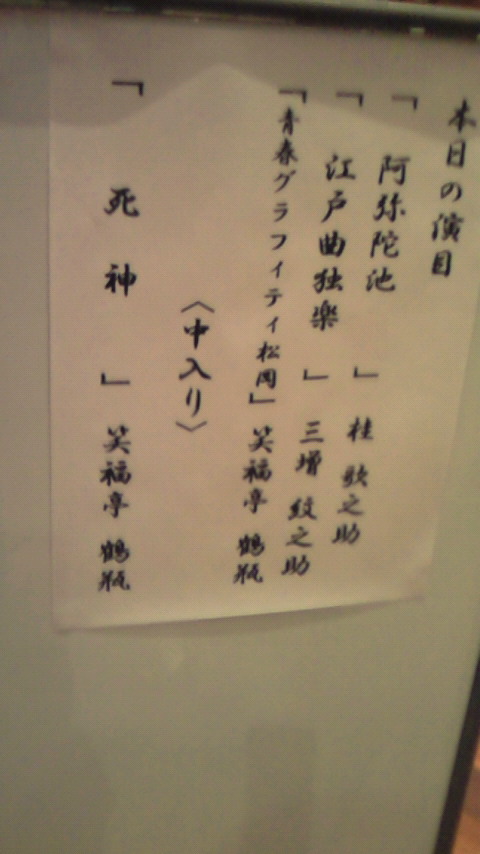 本日の演目
「阿弥陀池」 桂 歌之助
「江戸曲独楽」 三増 紋之助
「青春グラフィティ松岡」 笑福亭 鶴瓶
〈中入り〉
「死神」 笑福亭 鶴瓶